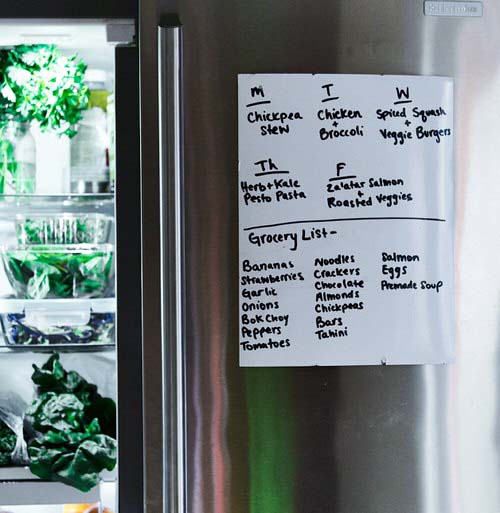 M
Chickpea
Stew
T
Chicken
+
Broccoli
W
Spiced Squash
+
Veggie Burgers
Th
Herb+Kale
Pesto Pasta
F
Za'atar Salmon
+
Roasted Veggies
Grocery List-
Bananas
Strawberries
Garlic
Onions
Bok Choy
Peppers
Tomatoes
Noodles
Crackers
Chocolate
Almonds
Chickpeas
Bars
Tahini
Salmon
Eggs
Premade Soup